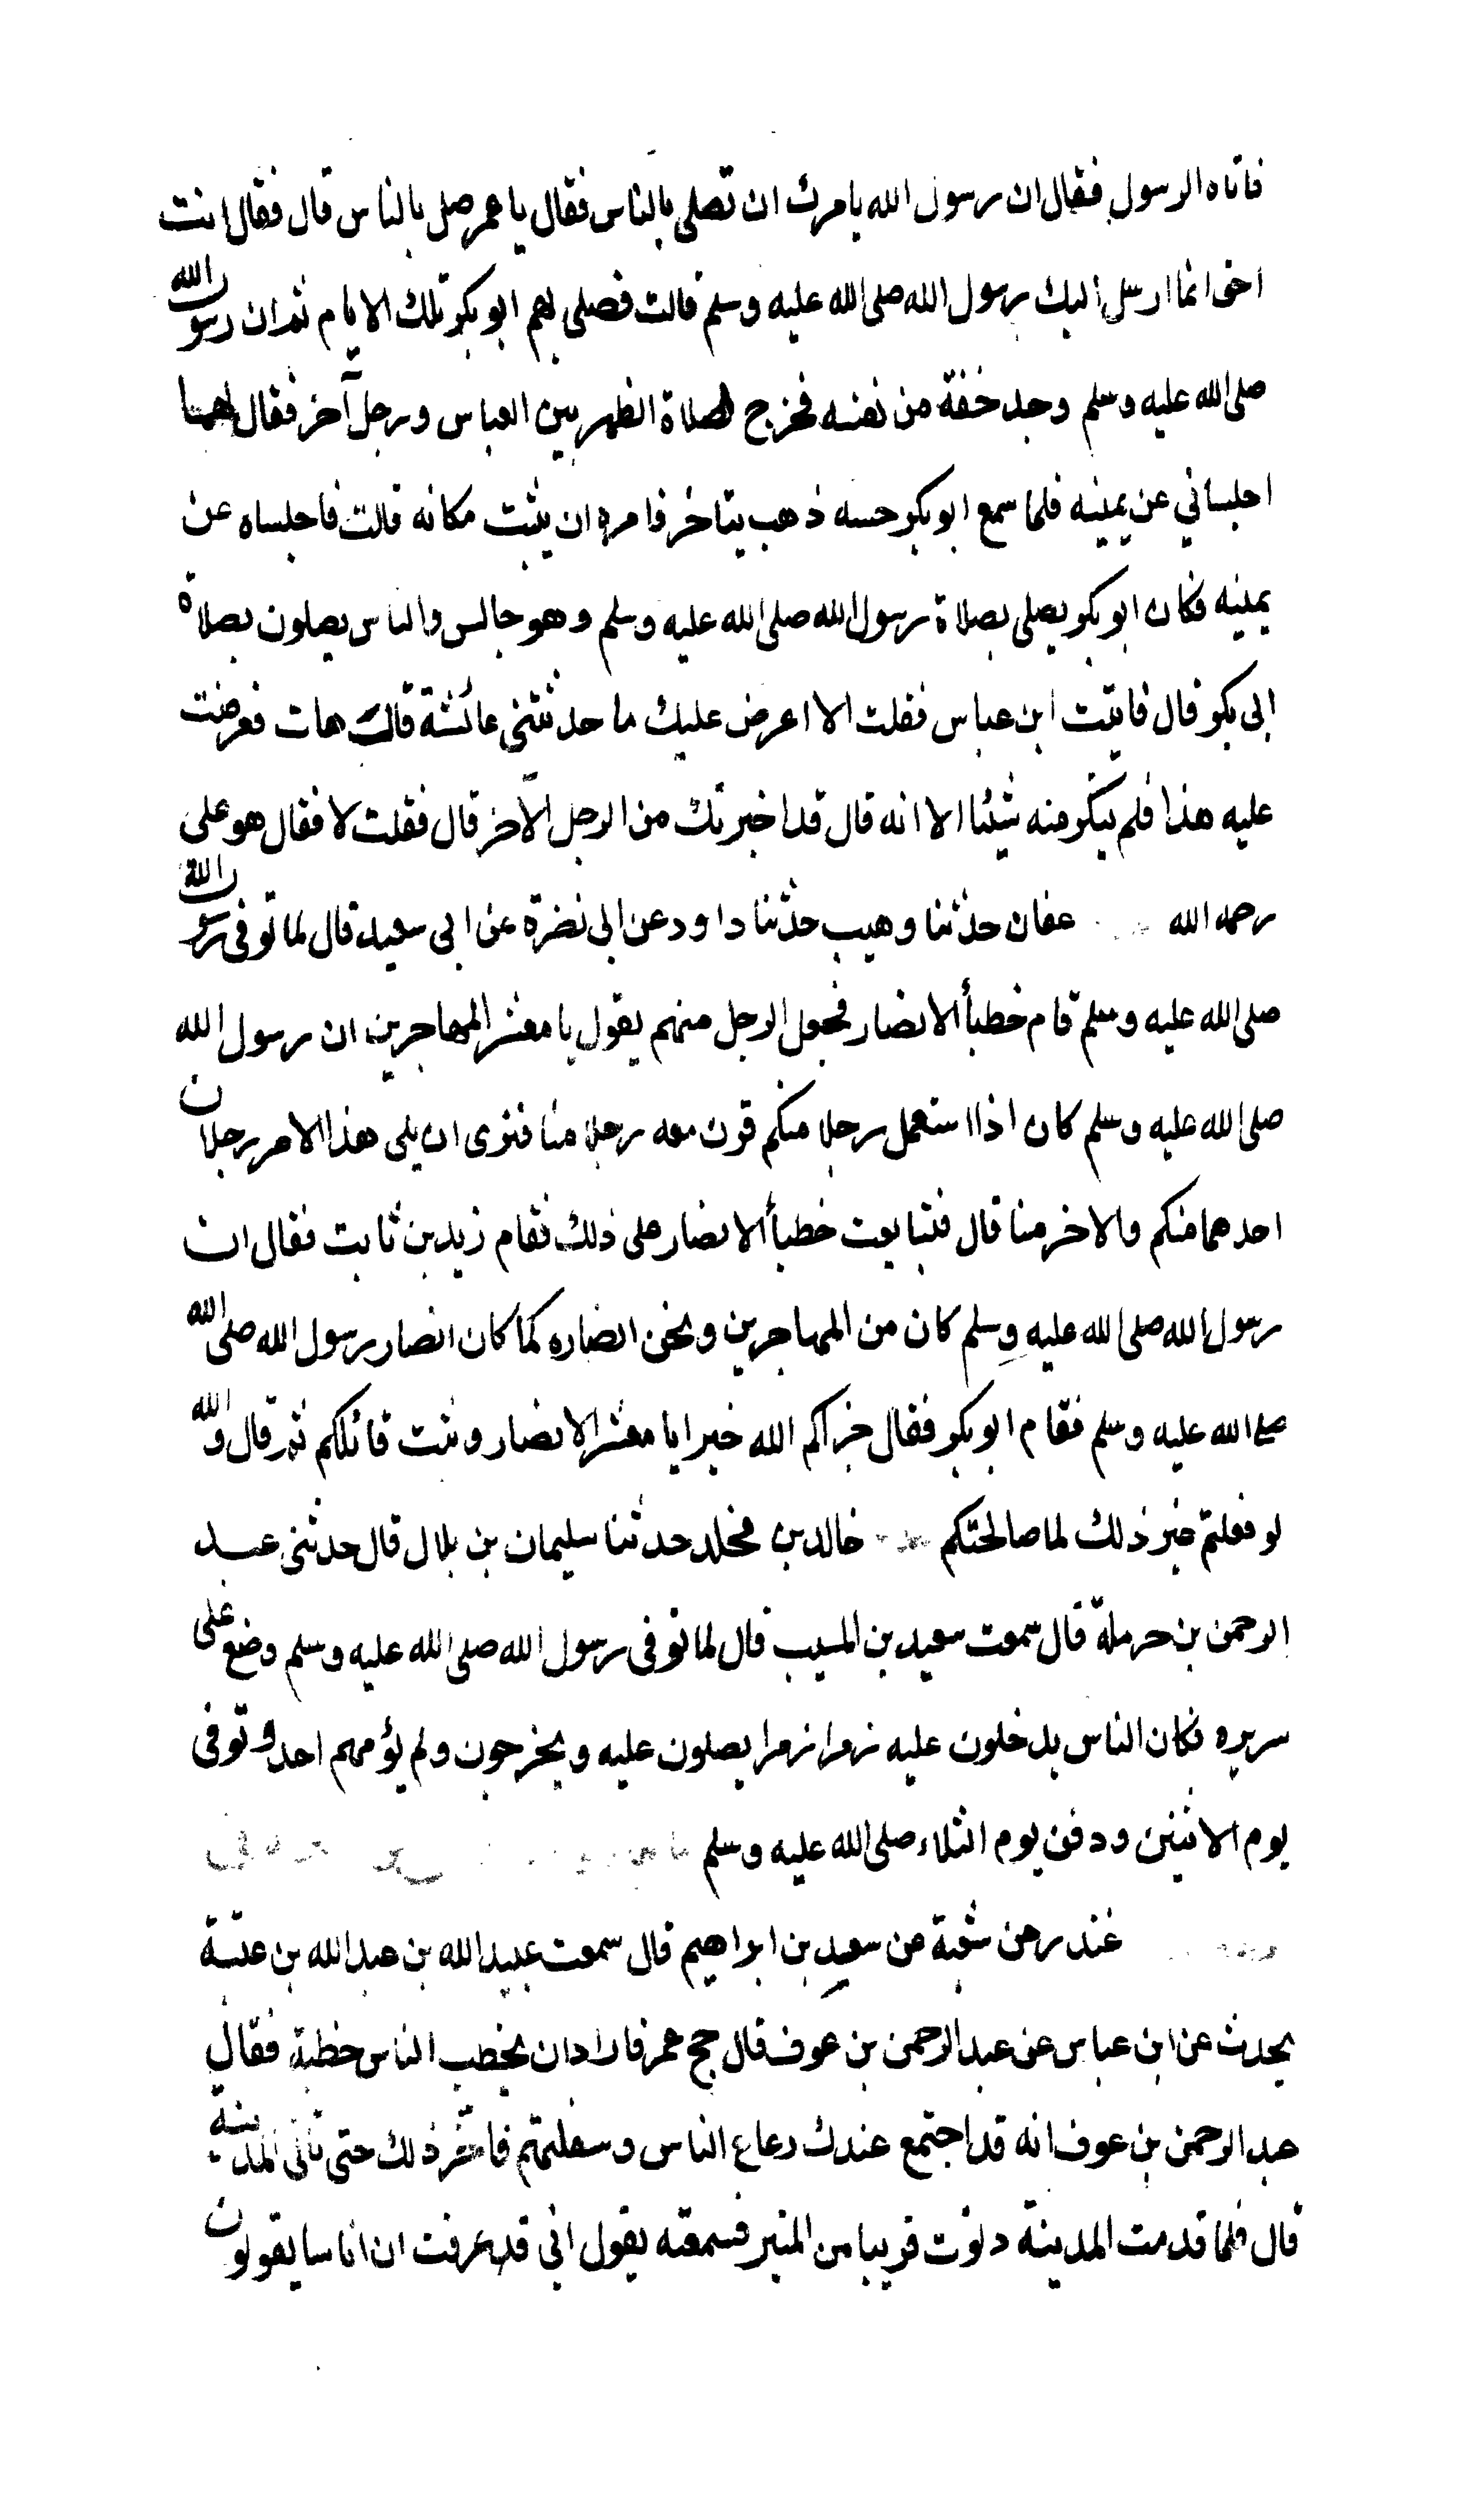 فاتاه الرسول فقال ان رسول الله يامرك ان تصلى بالناس فقال يا عمر صل بالناس قال فقال انت
احق انما ارسل اليك رسول الله صلى الله عليه وسلم قالت فصلى بهم ابو بكر تلك الايام ثم ان رسول الله
صلى الله عليه وسلم وجد خفة من نفسه فخرج لصلاة الظهر بين العباس ورجل آخر فقال لهما
اجلساني عن يمينه فلما سمع ابو بكر حسه ذهب يتاخر فامره ان يثبت مكانه قالت فاجلساه عن
يمينه فكان ابو بكر يصلى بصلاة رسول الله صلى الله عليه وسلم وهو جالس والناس يصلون بصلاة
ابى بكر قال فاتيت ابن عباس فقلت الا اعرض عليك ما حدثتنى عائشة قال هات فعرضت
عليه هذا فلم ينكر منه شيئا الا انه قال قد اخبرتك من الرجل الآخر قال فقلت لا فقال هو على
رحمه الله عفان حدثنا وهيب حدثنا داود عن ابى نضرة عن ابى سعيد قال لما توفى رسول الله
صلى الله عليه وسلم قام خطبأ الانصار فجعل الرجل منهم يقول يا معشر المهاجرين ان رسول الله
صلى الله عليه وسلم كان اذا استعمل رجلا منكم قرن معه رجلا منا فنرى ان يلى هذا الامر رجلان
احدهما منكم والاخر منا قال فتتابعت خطبأ الانصار على ذلك فقام زيد بن ثابت فقال ان
رسول الله صلى الله عليه وسلم كان من المهاجرين ونحن انصاره كما كان انصار رسول الله صلى الله
صلى الله عليه وسلم فقام ابو بكر فقال جزاكم الله خيرا يا معشر الانصار وثبت قائلكم ثم قال والله
لو فعلتم غير ذلك لما صالحتكم خالد بن مخلد حدثنا سليمان بن بلال قال حدثنى عبد
الرحمن بن حرملة قال سمعت سعيد بن المسيب قال لما توفى رسول الله صلى الله عليه وسلم وضع على
سريره فكان الناس يدخلون عليه زمرا زمرا يصلون عليه ويخرجون ولم يؤمهم احد وتوفى
يوم الاثنين ودفن يوم الثلاء صلى الله عليه وسلم
غندر عن شعبة عن سعيد بن ابراهيم قال سمعت عبيد الله بن عبد الله بن عتبة
يحدث عن ابن عباس عن عبد الرحمن بن عوف قال حج عمر فاراد ان يخطب الناس خطبة فقال
عبد الرحمن بن عوف انه قد اجتمع عندك رعاع الناس وسفلتهم فاخّر ذلك حتى تاتى المدينة
قال فلما قدمت المدينة دنوت قريبا من المنبر فسمعته يقول انى قد عرفت ان اناسا يقولون